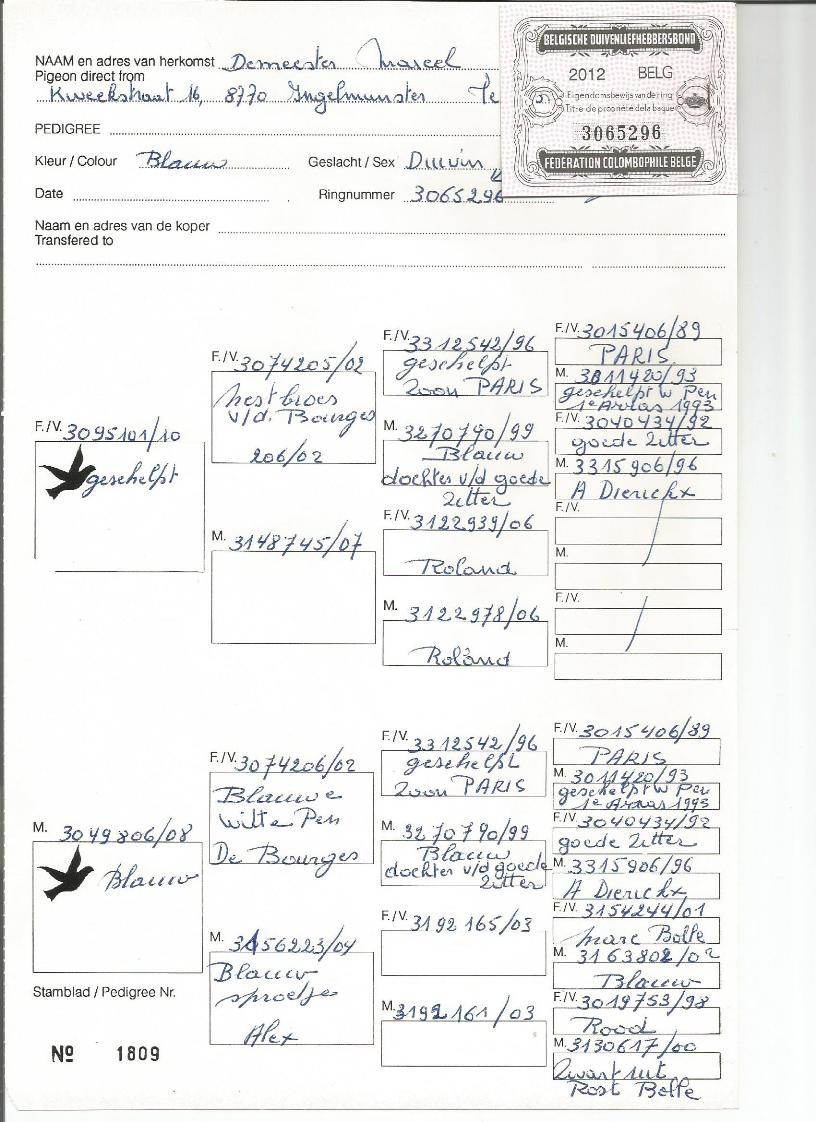 NAAM en adres van herkomst Demeester Marcel
Pigeon direct from
Kweekstraat 16, 8770 Ingelmunster Te
PEDIGREE
Kleur / Colour Blauw Geslacht / Sex Duivin
Date Ringnummer 3065296
Naam en adres van de koper
Transfered to
BELGISCHE DUIVENLIEFHEBBERSBOND
2012 BELG
Eigendomsbewijs van de ring
Titre de propriété de la bague
3065296
FÉDÉRATION COLOMBOPHILE BELGE
F./V. 3095101/10
geschelpt
F./V. 3074205/02
nestbroer
v/d. Bourges
206/02
M. 3148745/07
F./V. 3312542/96
geschelpt
zoon PARIS
M. 3270790/99
Blauw
dochter v/d goede
Zitter
F./V. 3122939/06
Roland
M. 3122978/06
Roland
F./V. 3015406/89
PARIS
M. 3011420/93
geschelpt w Pen
1e Arras 1993
F./V. 3040434/92
goede Zitter
M. 3315906/96
A Dierickx
F./V.
M.
F./V.
M.
M. 3049806/08
Blauw
F./V. 3074206/02
Blauwe
witte Pen
De Bourges
M. 3156223/04
Blauw
sproetje
Alex
F./V. 3312542/96
geschelpt
zoon PARIS
M. 3270790/99
Blauw
dochter v/d goede
Zitter
F./V. 3192165/03
M. 3192161/03
F./V. 3015406/89
PARIS
M. 3011420/93
geschelpt w Pen
1e Arras 1993
F./V. 3040434/92
goede Zitter
M. 3315906/96
A Dierickx
F./V. 3154244/01
Marc Bolle
M. 3163802/02
Blauw
F./V. 3019753/98
Rood
M. 3130617/00
Zwart uit
Rost Bolle
Stamblad / Pedigree Nr.
Nº 1809